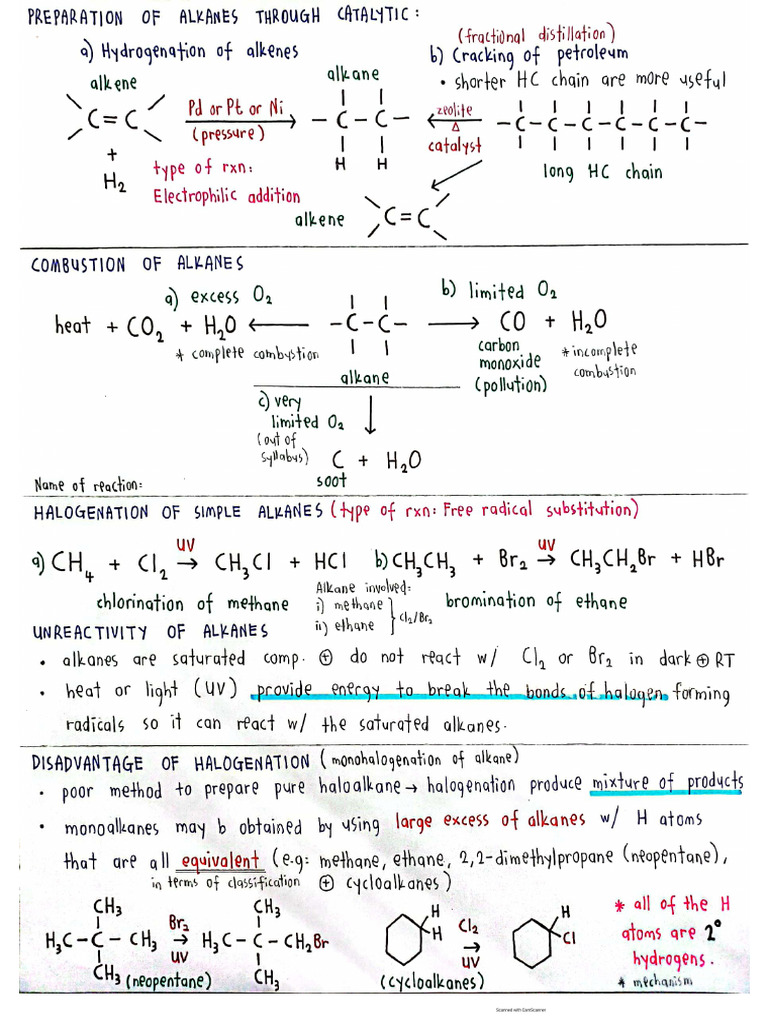 PREPARATION OF ALKANES THROUGH CATALYTIC:
a) Hydrogenation of alkenes
(fractional distillation)
b) Cracking of petroleum
• shorter HC chain are more useful
alkene
C=C
+
H₂
Pd or Pt or Ni
(pressure)
type of rxn:
Electrophilic addition
alkane
– C – C –
H H
zeolite
Δ
catalyst
– C – C – C – C – C – C –
long HC chain
alkene C=C
COMBUSTION OF ALKANES
a) excess O₂
b) limited O₂
heat + CO₂ + H₂O ← – C – C – → CO + H₂O
* complete combustion
alkane
carbon
monoxide
(pollution)
* incomplete
combustion
c) very
limited O₂
(out of
syllabus)
C + H₂O
soot
Name of reaction:
HALOGENATION OF SIMPLE ALKANES (type of rxn: Free radical substitution)
UV
a) CH₄ + Cl₂ → CH₃Cl + HCl
UV
b) CH₃CH₃ + Br₂ → CH₃CH₂Br + HBr
chlorination of methane
Alkane involved:
i) methane
ii) ethane
} Cl₂/Br₂
bromination of ethane
UNREACTIVITY OF ALKANES
• alkanes are saturated comp. ⊕ do not react w/ Cl₂ or Br₂ in dark ⊕ RT
• heat or light (UV) provide energy to break the bonds of halogen forming
radicals so it can react w/ the saturated alkanes.
DISADVANTAGE OF HALOGENATION (monohalogenation of alkane)
• poor method to prepare pure haloalkane → halogenation produce mixture of products
• monoalkanes may b obtained by using large excess of alkanes w/ H atoms
that are all equivalent (e.g: methane, ethane, 2,2-dimethylpropane (neopentane),
in terms of classification ⊕ cycloalkanes)
CH₃
H₃C – C – CH₃
CH₃
(neopentane)
Br₂
→
UV
CH₃
H₃C – C – CH₂Br
CH₃
H
H
(cycloalkanes)
Cl₂
→
UV
H
Cl
* all of the H
atoms are 2°
hydrogens.
* mechanism
Scanned with CamScanner